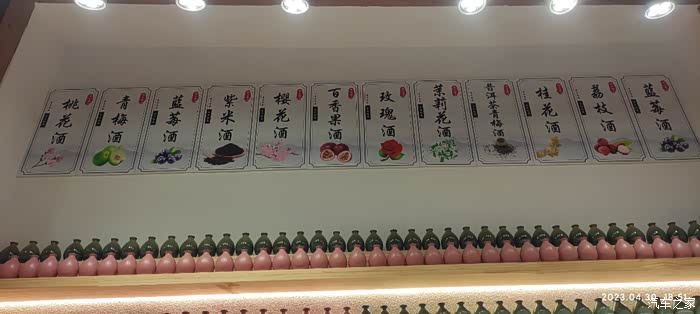 桃花酒
青梅酒
蓝莓酒
紫米酒
樱花酒
百香果酒
玫瑰酒
茉莉花酒
普洱茶青梅酒
桂花酒
荔枝酒
蓝莓酒
2023.04.30 18:51
汽车之家